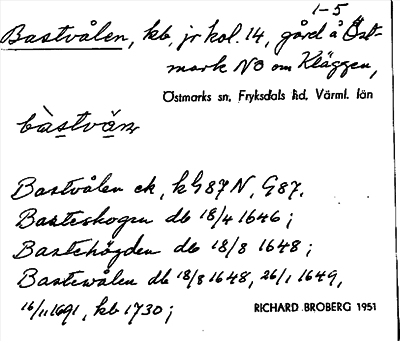 1-5
Bastvålen, kb, jr kol. 14, gård å Öst-
mark NO om Kläggen,
Östmarks sn, Fryksdals hd, Värml. län
Bastvålen ek, kG87N, G87.
Basteskogen db 18/4 1646;
Bastehögden db 18/8 1648;
Bastewålen db 18/8 1648, 26/1 1649,
16/11 1691, kb 1730;
RICHARD BROBERG 1951